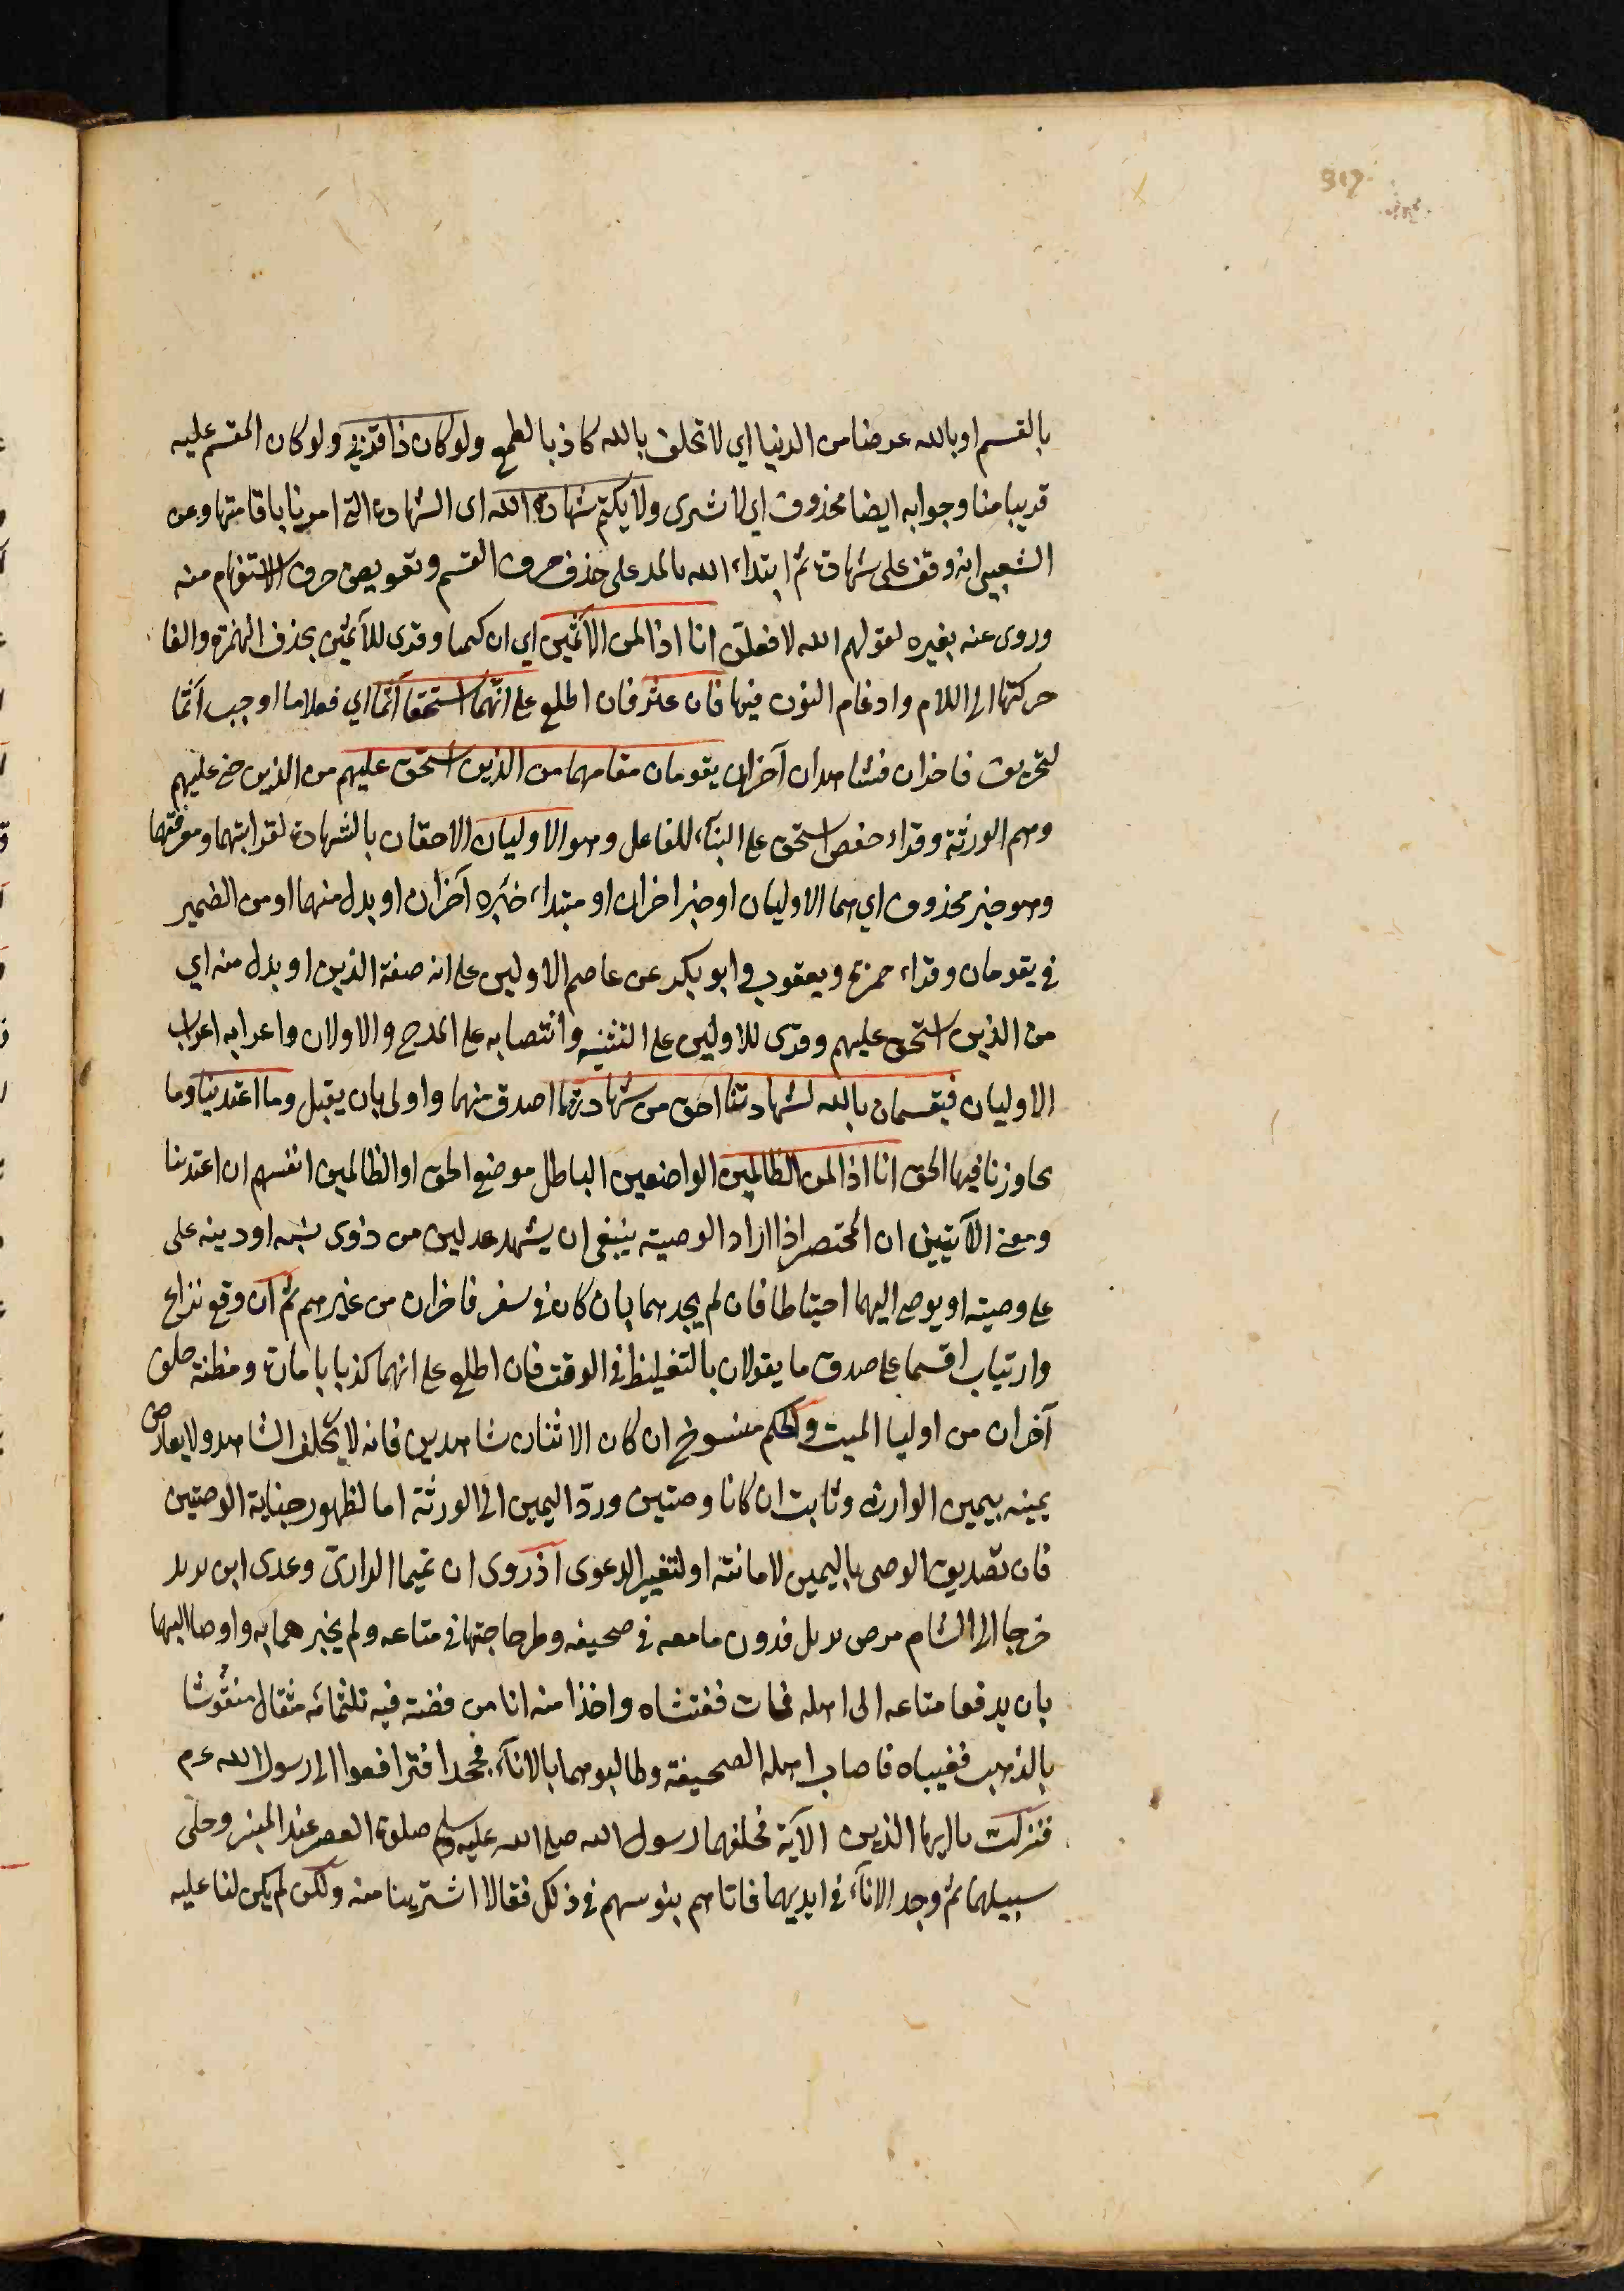 بالقسم او بالله عرضا من الدنيا اي لا نحلف بالله كاذبا لطمع ولو كان ذا قربى ولو كان المقسم عليه
قريبا منا وجوابه ايضا محذوف اي لا نشرى ولا نكتم شهادة الله اى الشهادة التى امرنا باقامتها وعن
الشعبى انه وقف على شهادة ثم ابتداء الله بالمد على حذف حرف القسم وتعويض حرف الاستفهام منه
وروى عنه بغيره لقولهم الله لافعلن انا اذا لمن الآثمين اي ان كتمنا وقرى للآثمين بحذف الهمزة والقا
حركتها الى اللام وادغام النون فيها فان عثر فان اطلع على انهما استحقا اثما اي فعلا ما اوجب اثما
لتحريف فاخران فشاهدان آخران يقومان مقامهما من الذين استحق عليهم من الذين جنى عليهم
وهم الورثة وقراء حفص استحق على البناء للفاعل وهو الاوليان الاحقان بالشهادة لقرابتهما ومعرفتهما
وهو خبر محذوف اي هما الاوليان او خبر اخران او مبتداء خبره آخران او بدل منهما او من الضمير
في يقومان وقراء حمزة ويعقوب وابو بكر عن عاصم الاولين على انه صفة الذين او بدل منه اي
من الذين استحق عليهم وقرى للاولين على التثنيه وانتصابه على المدح والاولان واعرابه اعراب
الاوليان فيقسمان بالله لشهادتنا احق من شهادتهما اصدق منهما واولى بان يقبل وما اعتدينا وما
تجاوزنا فيها الحق انا اذا لمن الظالمين الواضعين الباطل موضع الحق او الظالمين انفسهم ان اعتدينا
ومعنى الآيتين ان المحتضر اذا اراد الوصية ينبغى ان يشهد عدلين من ذوى نسبه او دينه على
على وصيته او يوصى اليهما احتياطا فان لم يجدهما بان كان في سفر فاخران من غيرهم ثم ان وقع نزاع
وارتياب اقسما على صدق ما يقولان بالتغليظ في الوقت فان اطلع على انهما كذبا بامارة ومظنة حلف
آخران من اوليا الميت والحكم منسوخ ان كان الاثنان شاهدين فانه لا يحلف الشاهد ولا يعارض
يمينه بيمين الوارث وثابت ان كانا وصيين ورد اليمين الى الورثة اما لظهور جناية الوصيين
فان تصديق الوصى باليمين لامانته او لتغيير الدعوى اذ روى ان تميما الدارى وعدى ابن بديل
خرجا الى الشام مرض بديل فدون ما معه في صحيفه وطرحها جنبها في متاعه ولم يخبرهما به واوصا اليهما
بان يدفعا متاعه الى اهله فمات ففتشاه واخذا منه انا من فضته فيه ثلثمائه مثقال منقوشا
بالذهب فغيباه فاصاب اهله الصحيفة وطالبوهما بالاناء فجحدا فترافعوا الى رسول الله عم
فنزلت يا ايها الذين الآية فحلفهما رسول الله صلى الله عليه وسلم صلوة العصر عند المنبر وخلى
سبيلهما ثم وجد الاناء في ايديهما فاتاهم بنو سهم في ذلك فقالا اشترينا منه ولكن لم يكن لنا عليه